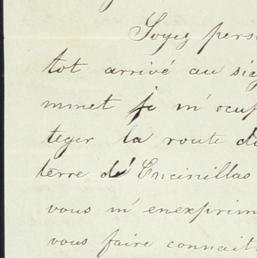 Soyez pers
tot arrivé au si
mmet je m'ocup
teger la route d
terre dé Encinillas
vous m'enexprim
vous faire connait